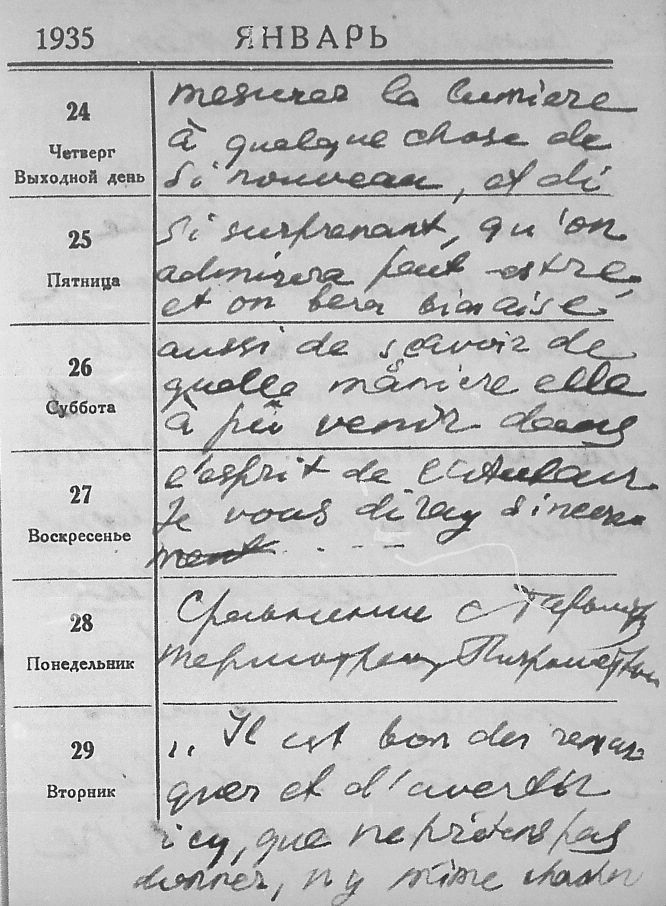 1935 ЯНВАРЬ
24
Четверг
Выходной день
mesurer la lumiere
à quelque chose de
si nouveau, et di
25
Пятница
si surprenant, qu'on
admirera peut estre,
et on bera bienaise
26
Суббота
aussi de sçavoir de
quelle maniere elle
à pû venir dans
27
Воскресенье
l'esprit de l'Auteur.
Je vous diray sincere-
ment . - - -
28
Понедельник
Сравнение с
термометром,
29
Вторник
,, Il est bon der remar
quer et d'avertir
icy, que ne prétens pas
donner, ny même